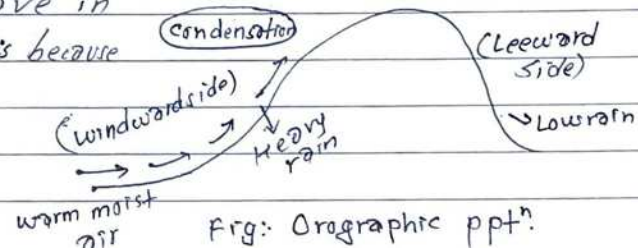 ove in
s because
condensation
(windwardside)
(Leeward
side)
Heavy
rain
Lowrain
warm moist
air
Fig:- Orographic pptⁿ.